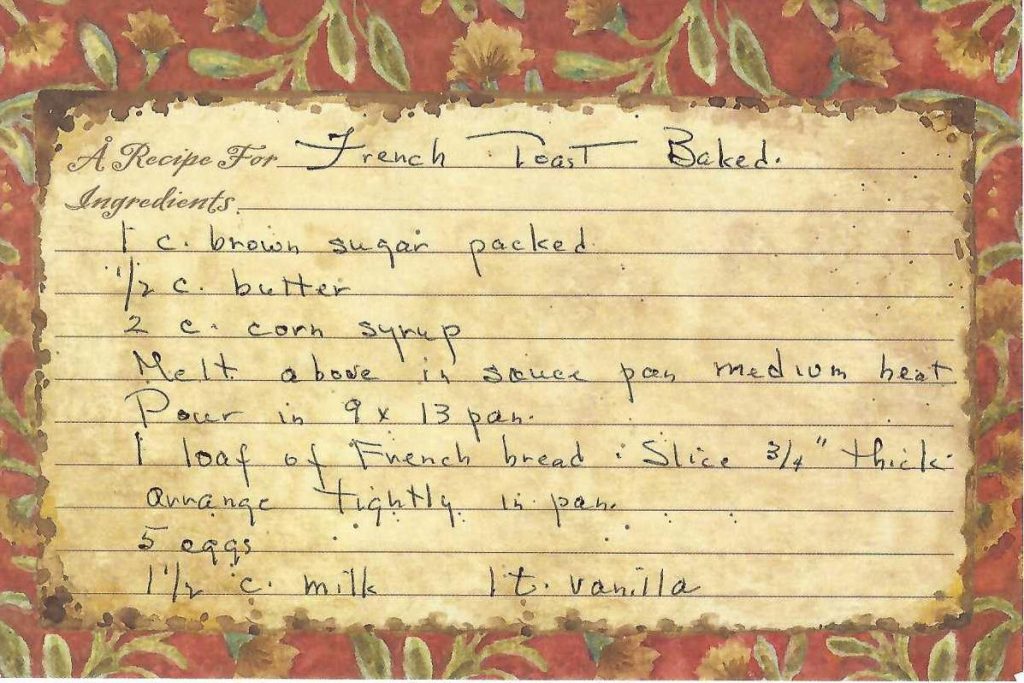 A Recipe For French Toast Baked.
Ingredients
1 c. brown sugar packed
1/2 c. butter
2 c. corn syrup
Melt above in sauce pan medium heat
Pour in 9 x 13 pan.
1 loaf of French bread : Slice 3/4" thick
arrange tightly in pan.
5 eggs
1 1/2 c. milk 1 t. vanilla